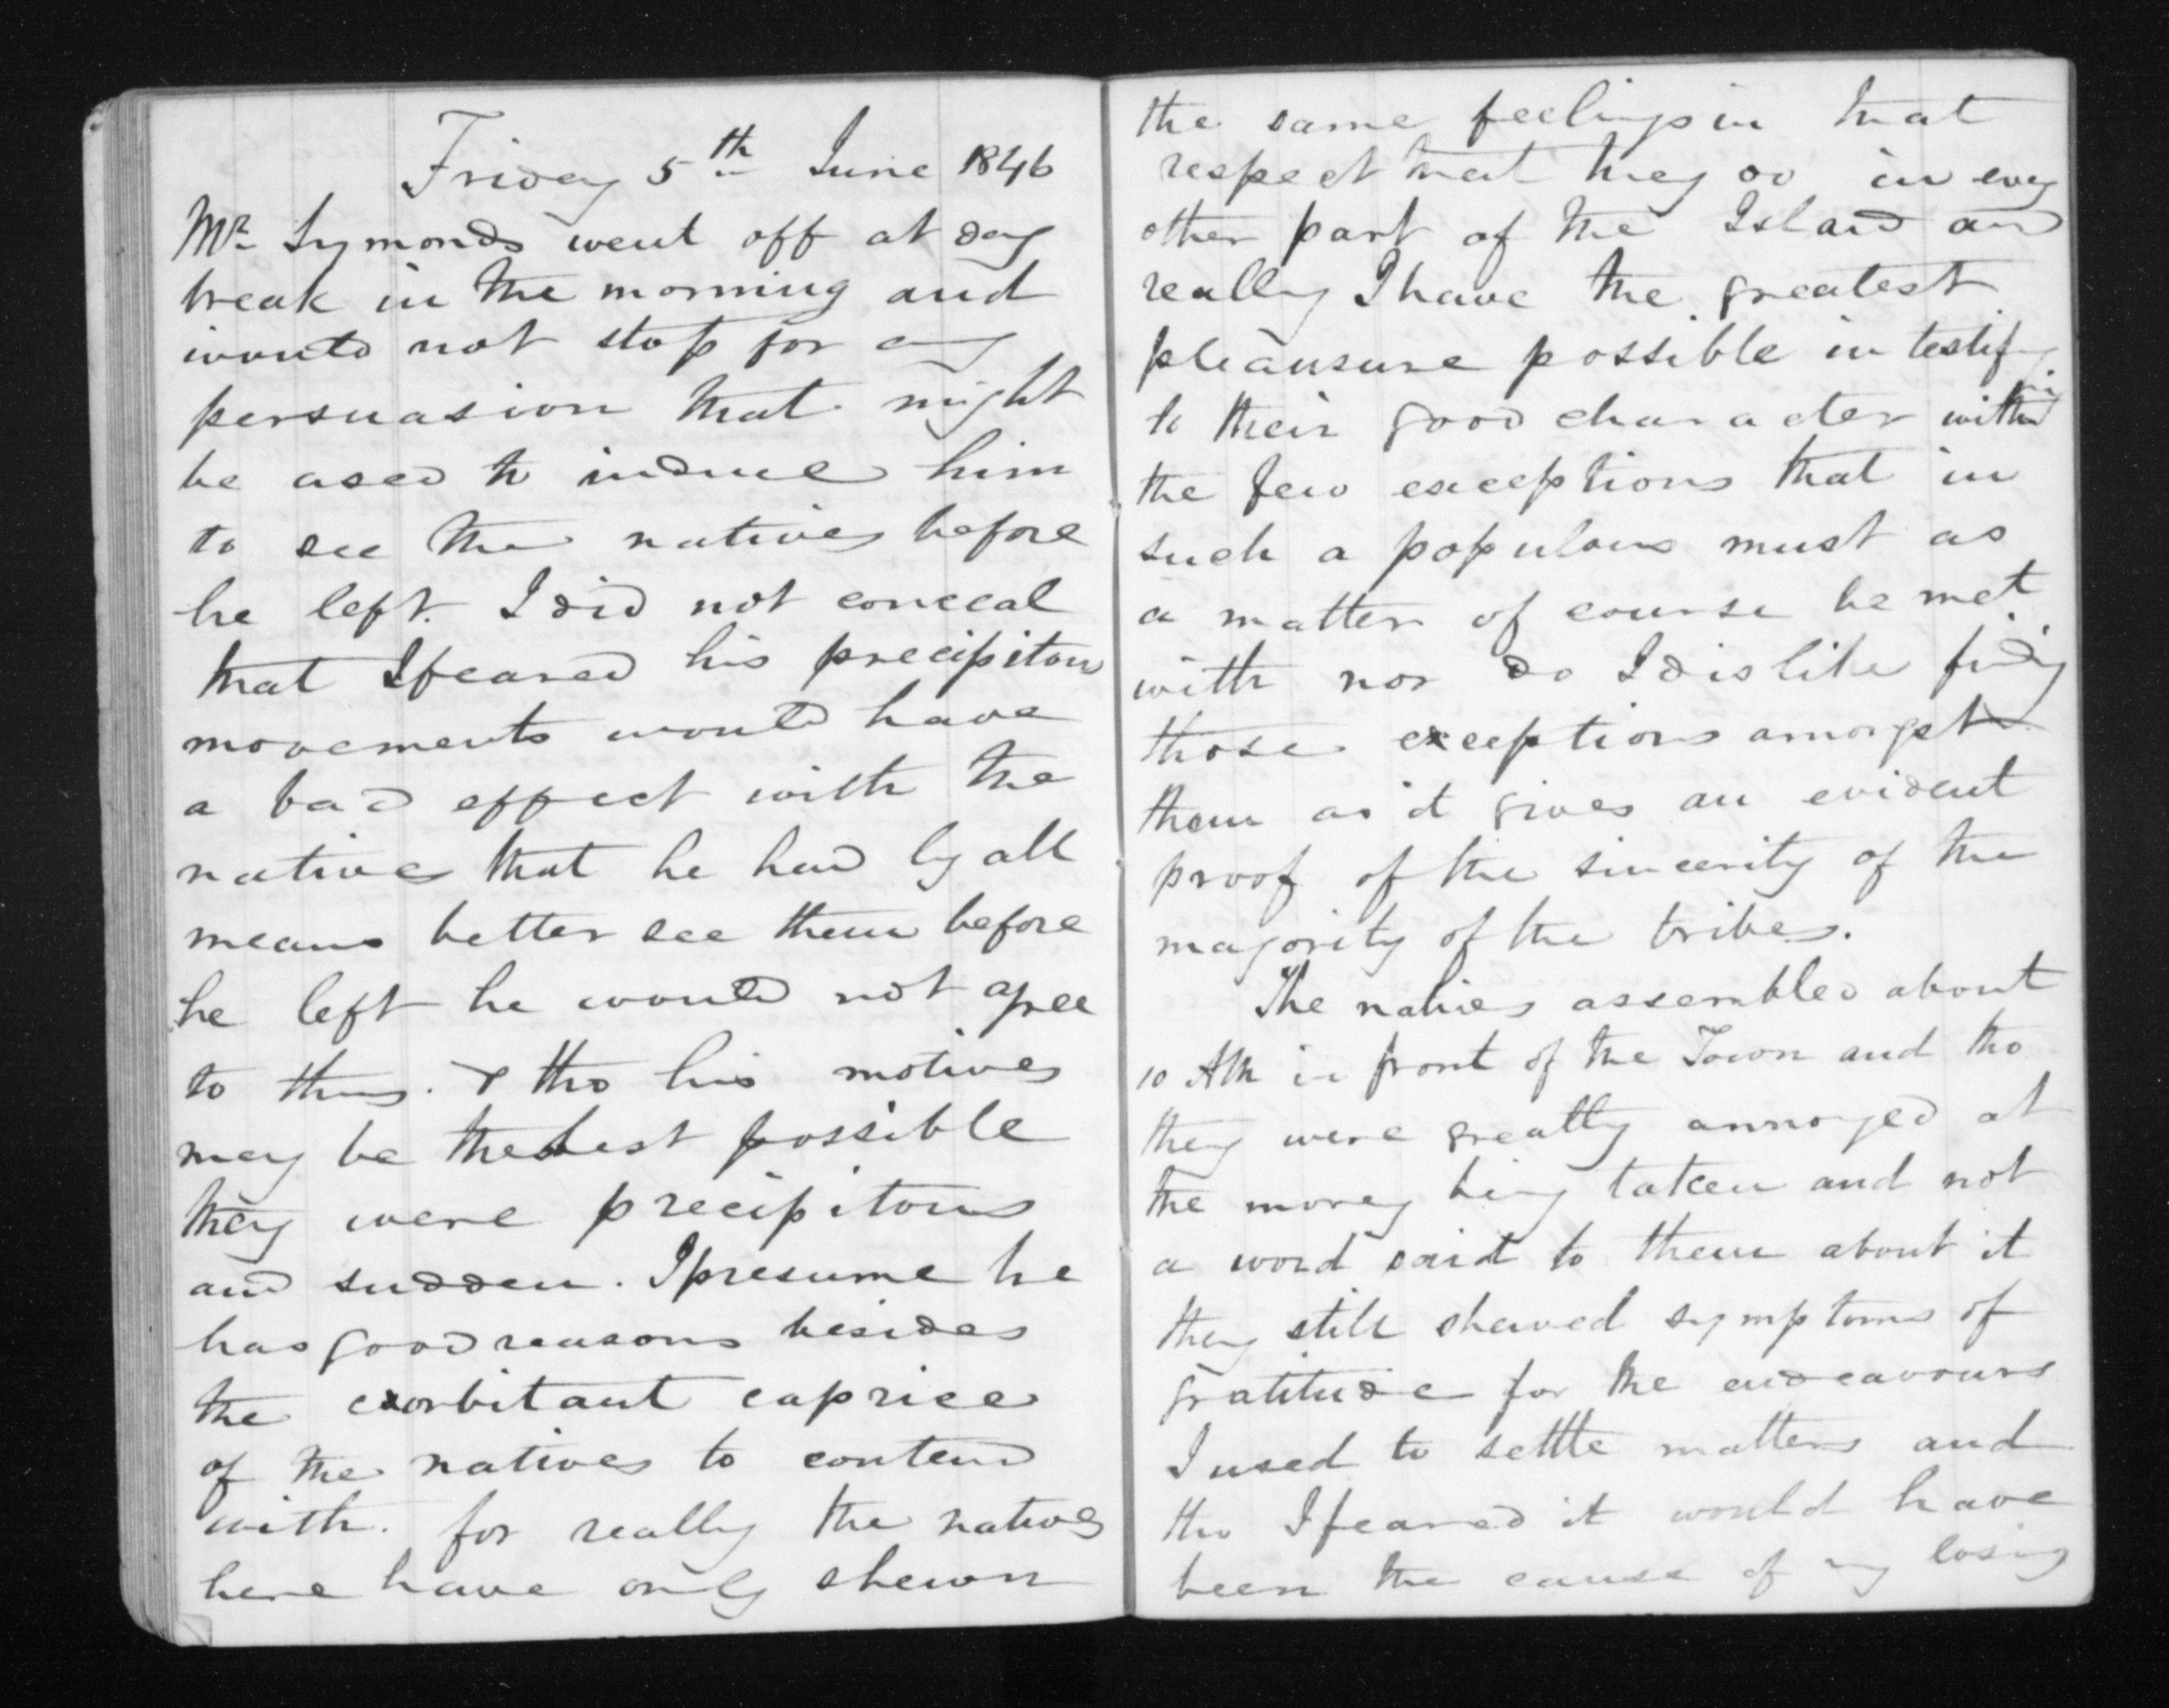 Friday 5th June 1846
Mr Symonds went off at day
break in the morning and
would not stop for any
persuasion that might
be used to induce him
to see the natives before
he left. I did not conceal
that I feared his precipitous
movements would have
a bad effect with the
natives that he had by all
means better see them before
he left he would not agree
to this. & tho his motives
may be the best possible
they were precipitous
and sudden. I presume he
has good reasons besides
the exorbitant caprice
of the natives to contend
with. for really the natives
here have only shewn
the same feelings in that
respect that they do in every
other part of the Island and
really I have the greatest
pleausure possible in testifying
to their good character with
the few exceptions that in
such a populous must as
a matter of course be met
with nor do I dislike finding
those exceptions amongst
them as it gives an evident
proof of the sincerity of the
majority of the tribes.
The natives assembled about
10 AM in front of the Town and tho
they were greatly annoyed at
the money being taken and not
a word said to them about it
they still shewed symptoms of
gratitude for the endeavours
I used to settle matters and
tho I feared it would have
been the cause of my losing